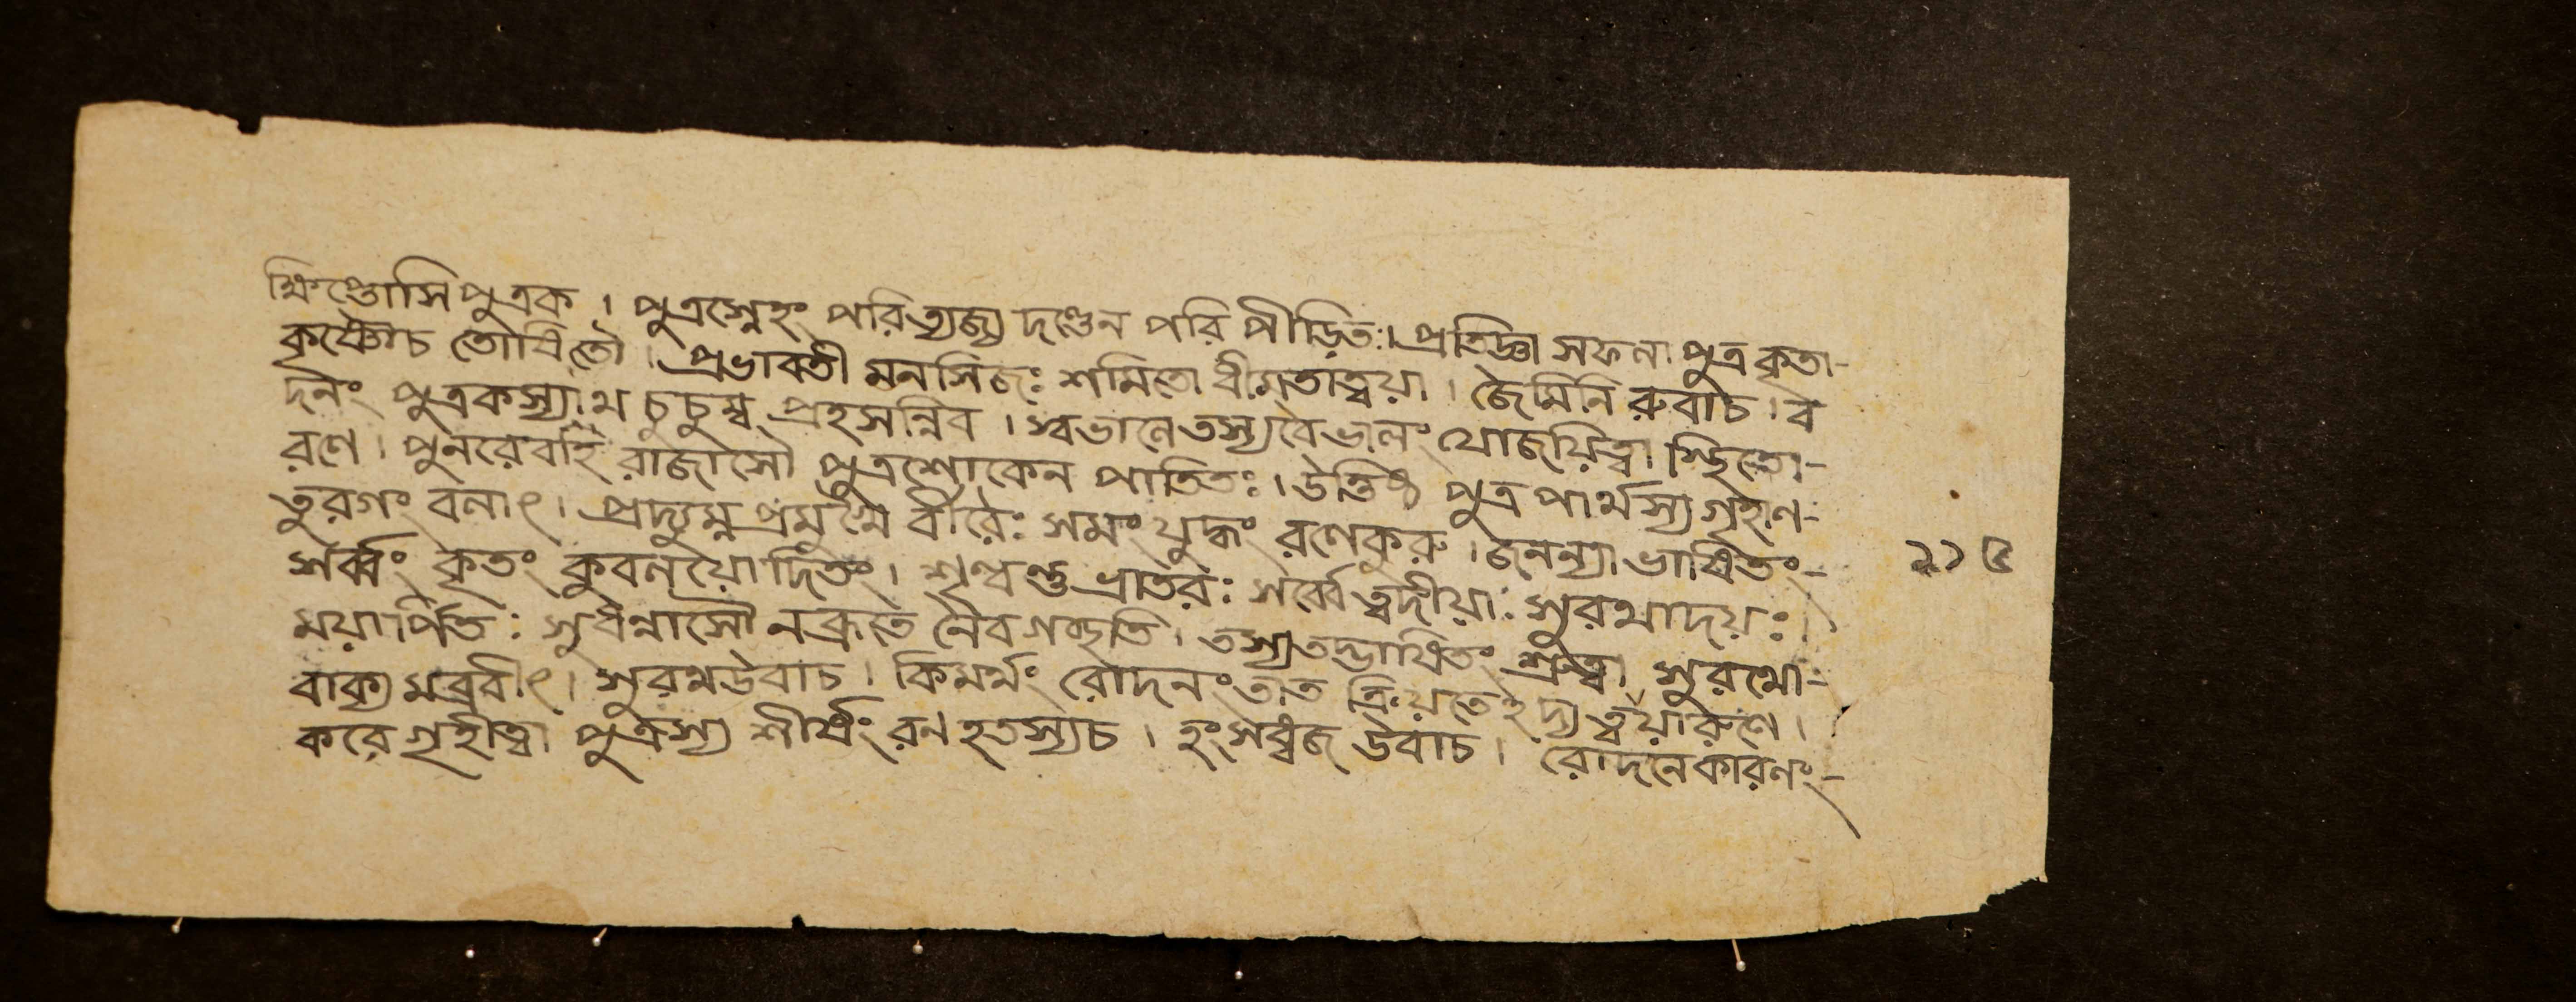 ক্ষিপ্তোসি পুত্রক । পুত্রস্নেহং পরিত্যজ্য দণ্ডেন পরি পীড়িতঃ। প্রতিজ্ঞা সফলা পুত্র কৃতা-
কৃষ্ণৌচ তোষিতৌ । প্রভাবতী মনসিজঃ শমিতো বীমতাত্বয়া । জৈমিনি রুবাচ । ব
দনং পুত্রকস্যাথ চুচুম্ব প্রহসন্নিব । স্বভালে তস্যবৈভালং যোজয়িত্বা স্থিতো-
রণে । পুনরেবহি রাজাসৌ পুত্রশোকেন পাতিতঃ । উত্তিষ্ঠ পুত্র পার্থস্য গৃহাণ-
তুরগং বলাৎ । প্রদ্যুম্ন প্রমুখৈ র্বীরৈঃ সমং যুদ্ধং রণেকুরু । জনন্যা ভাষিতং-
সর্ব্বং কৃতং কুবলয়োদিতং । শৃণ্বন্তু ভ্রাতরঃ সর্ব্বে ত্বদীয়াঃ সুরথাদয়ঃ ।
ময়ার্পিতঃ সুধন্বাসৌ নব্রূতে নৈব গচ্ছতি । তস্যতদ্ভাষিতং শ্রুত্বা সুরথো-
বাক্য মব্রবীৎ । সুরথউবাচ । কিমর্থং রোদনং তাত ক্রিয়তেহদ্য ত্বয়ারণে ।
করে গৃহীত্বা পুত্রস্য শীর্ষং রণ হতস্যচ । হংসধ্বজ উবাচ । রোদনে কারণং-
২১৫